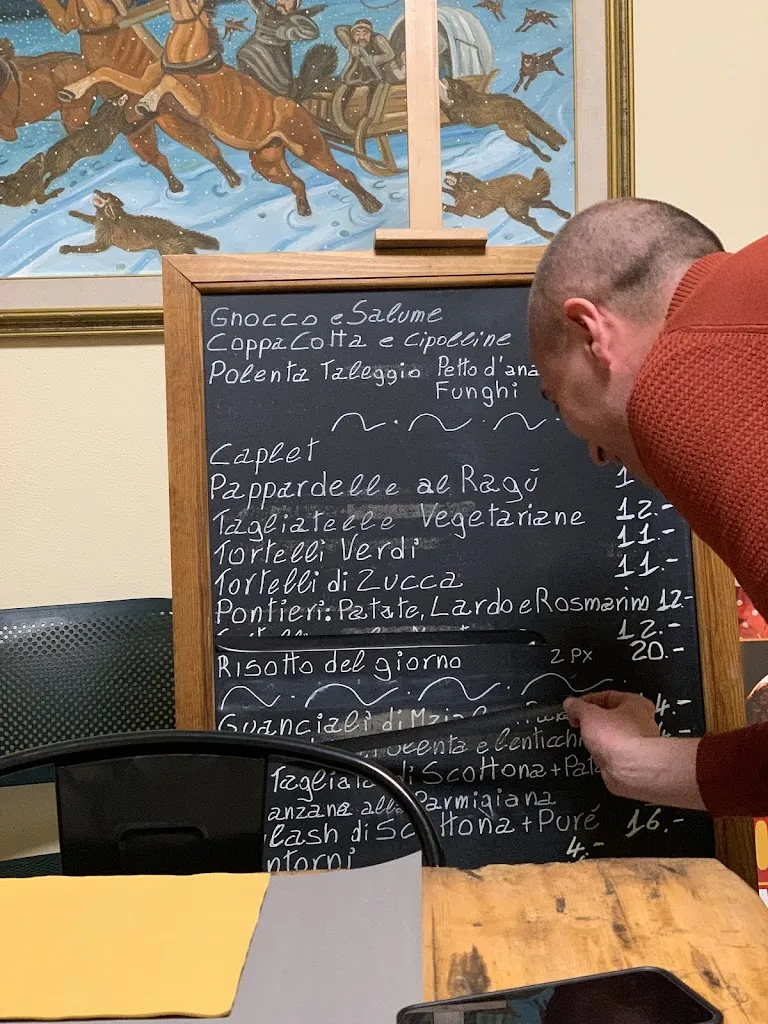 Gnocco e Salume
Coppa Cotta e cipolline
Polenta Taleggio Petto d'ana
Funghi
Caplet
Pappardelle al Ragù 1
Tagliatelle Vegetariane 12.-
Tortelli Verdi 11.-
Tortelli di Zucca 11.-
Pontieri: Patate, Lardo e Rosmarino 12-
12.-
Risotto del giorno 2 PX 20.-
Guanciali di 4.-
olenta e lenticchi
Tagliata di Scottona + Pat
anzane alla Parmigiana
lash di Scottona + Purè 16.-
ntorni 4.-